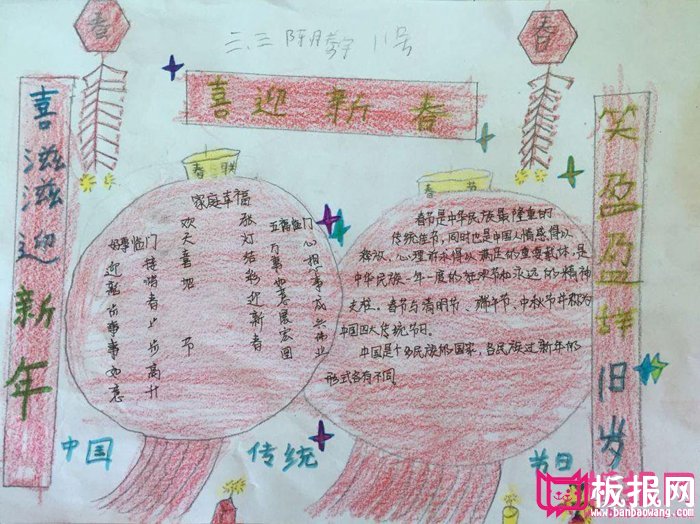 三.三 陈 11号
春
春
喜迎新春
喜滋滋迎新年
笑盈盈辞旧岁
春联
家庭幸福
张灯结彩迎新春
欢天喜地 节
五福临门
心想事成兴伟业
万事如意展宏图
临门
步高升
迎新 事事如意
春节
春节是中华民族最隆重的
传统佳节,同时也是中国人情感得以
释放、心理诉求得以满足的重要载体,是
中华民族一年一度的狂欢节和永远的精神
支柱。春节与清明节、端午节、中秋节并称为
中国四大传统节日。
中国是个多民族的国家,各民族过新年的
形式各有不同
中国 传统 节日
板报网
www.banbaowang.com